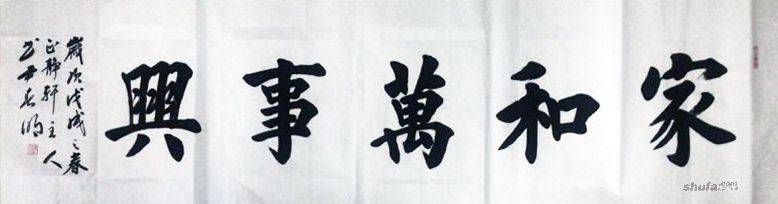 家和萬事興
歲次戊戌之春
正靜軒主人
shufa